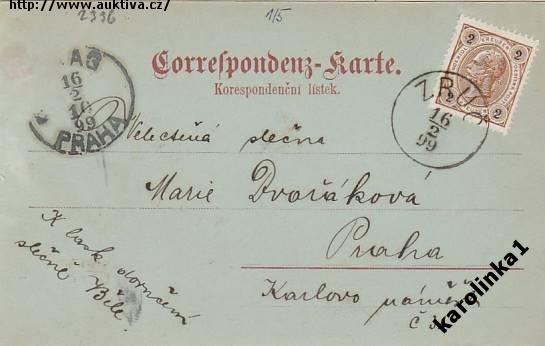 http://www.auktiva.cz/
2336
1/5
AG
16
2
16
99
PRAHA
Correspondenz-Karte.
Korespondenční lístek.
2 KREUZER 2
2 2
16
2
99
Velectěná slečna
Marie Dvořáková
Praha
Karlovo náměstí
K lask. doručení
slečně Bíle.
karolinka1